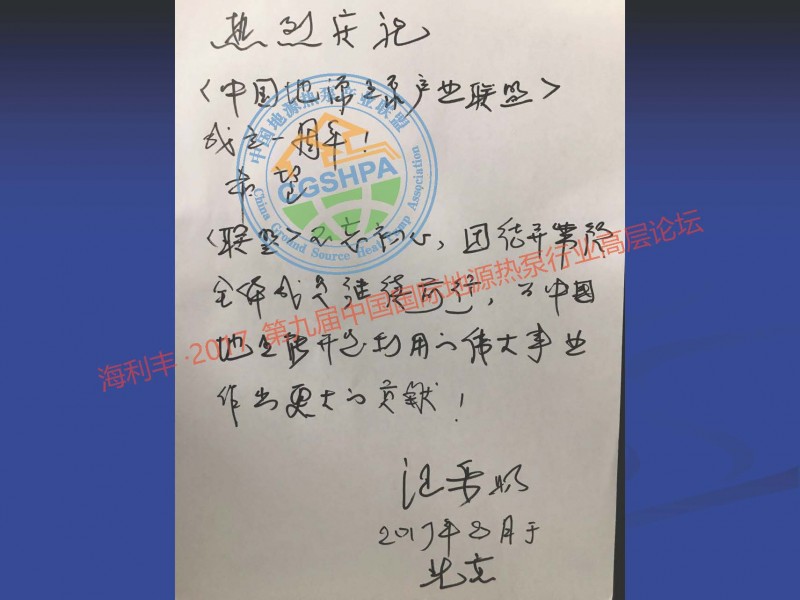 热烈庆祝
《中国地源热泵产业联盟》
成立一周年！
希望
《联盟》不忘初心，团结并带领
全体成员继续前行，为中国
地热能开发利用的伟大事业
作出更大的贡献！
2017年8月于
北京
中国地源热泵产业联盟
CGSHPA
China Ground Source Heat Pump Association
海利丰·2017 第九届中国国际地源热泵行业高层论坛